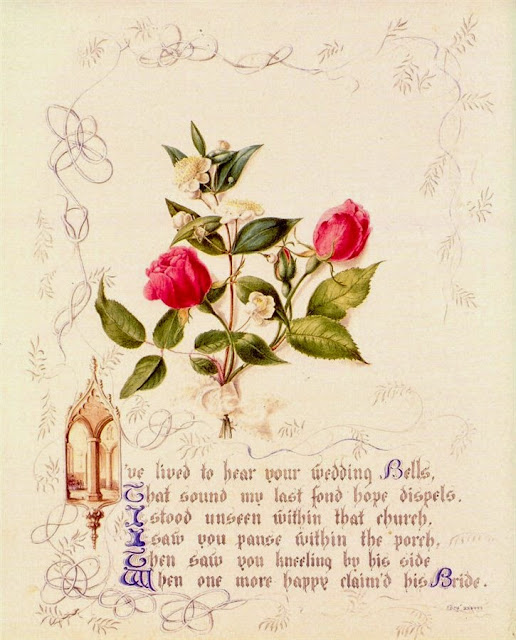 I've lived to hear your wedding Bells,
That sound my last fond hope dispels.
I stood unseen within that church.
I saw you pause within the porch,
Then saw you kneeling by his side
When one more happy claim'd his Bride.